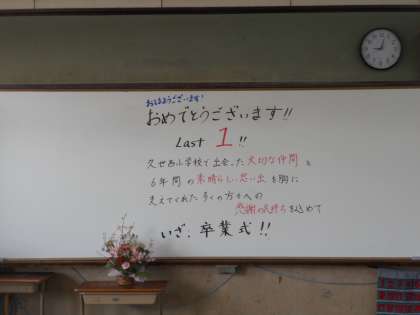 おはようございます!
おめでとうございます!!
Last 1 !!
久世西小学校で出会った大切な仲間と
6年間の素晴らしい思い出を胸に
支えてくれた多くの方々への
感謝の気持ちを込めて
いざ、卒業式!!